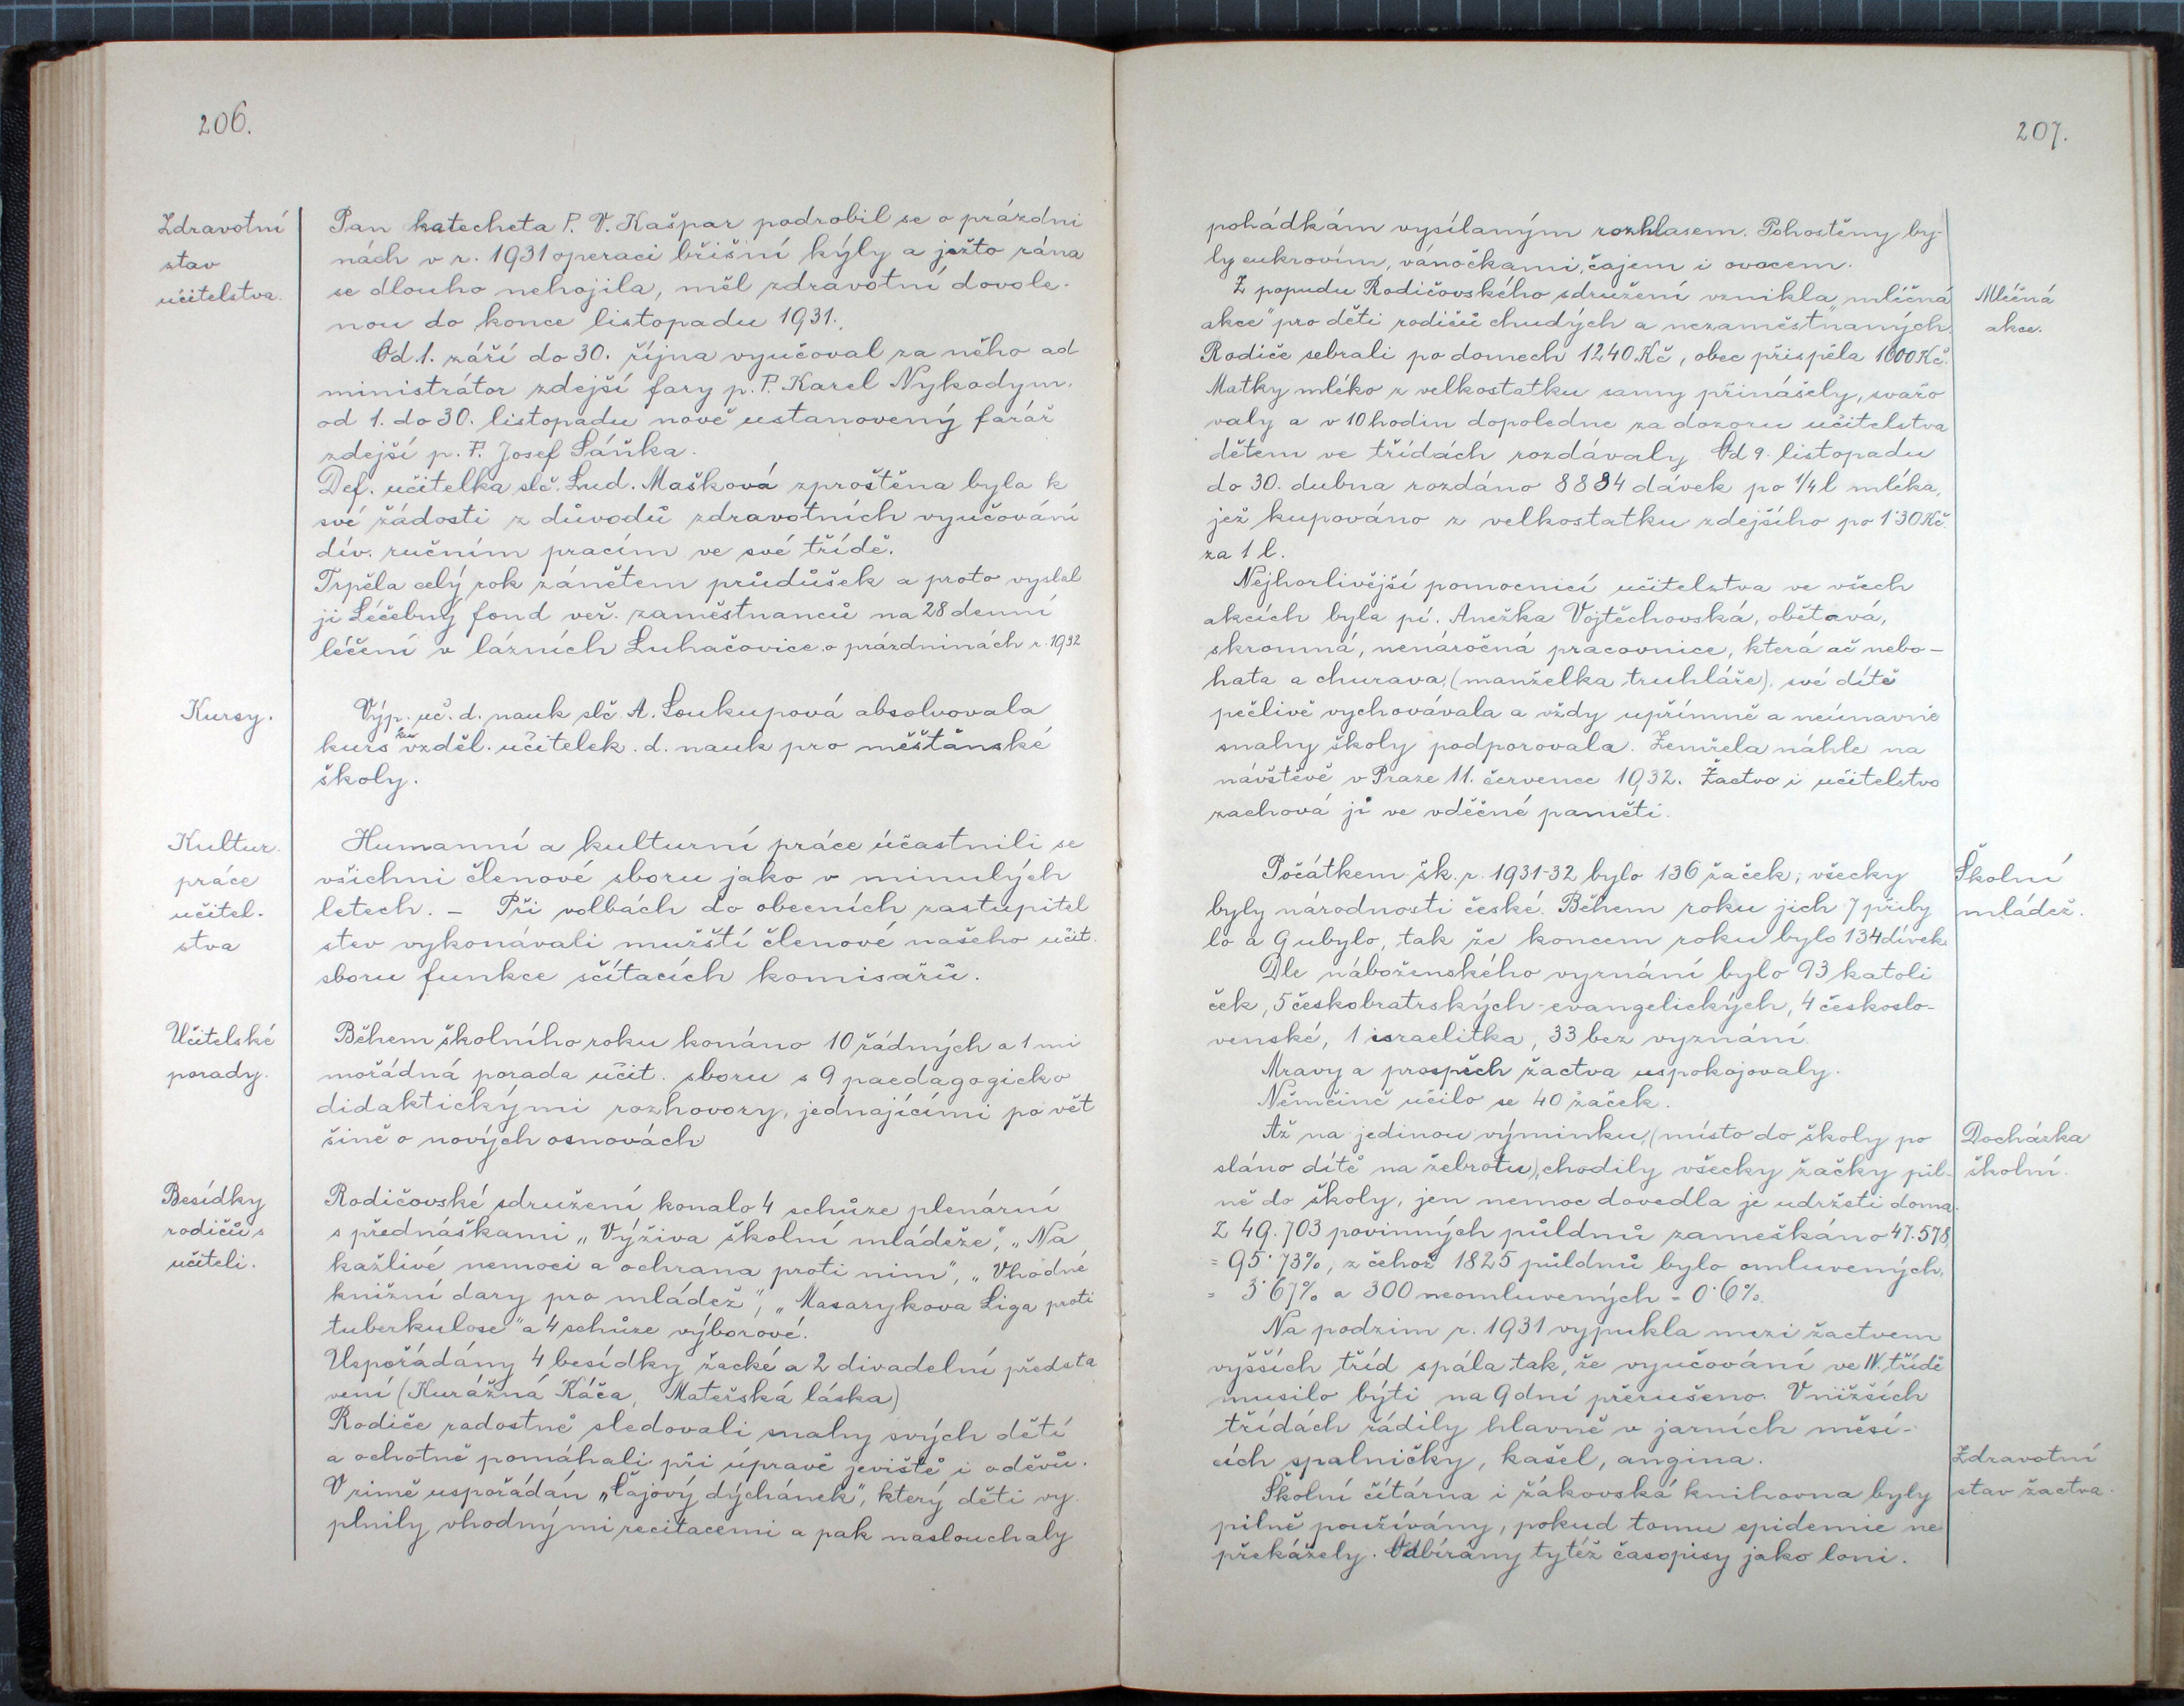 206.
Zdravotní
stav
učitelstva.
Pan katecheta P. V. Kašpar podrobil se o prázdni
nách v r. 1931 operaci břišní kýly a ježto rána
se dlouho nehojila, měl zdravotní dovole-
nou do konce listopadu 1931.
Od 1. září do 30. října vyučoval za něho ad
ministrátor zdejší fary p. P. Karel Nykodym.
od 1. do 30. listopadu nově ustanovený farář
zdejší p. P. Josef Sáňka.
Def. učitelka slč. Lud. Mašková zproštěna byla k
své žádosti z důvodů zdravotních vyučování
dív. ručním pracím ve své třídě.
Trpěla celý rok zánětem průdůšek a proto vyslal
ji Léčebný fond veř. zaměstnanců na 28 denní
léčení v lázních Luhačovice o prázdninách r. 1932
Kursy.
Výp. uč. d. nauk slč A. Soukupová absolvovala
kurs ku vzděl. učitelek. d. nauk pro měšťanské
školy.
Kultur.
práce
učitel-
stva
Humanní a kulturní práce účastnili se
všichni členové sboru jako v minulých
letech. – Při volbách do obecních zastupitel
stev vykonávali mužští členové našeho učit.
sboru funkce sčítacích komisařů.
Učitelské
porady.
Během školního roku konáno 10 řádných a 1 mi
mořádná porada učit. sboru s 9 paedagogicko
didaktickými rozhovory, jednajícími po vět
šině o nových osnovách
Besídky
rodičů s
učiteli.
Rodičovské sdružení konalo 4 schůze plenární
s přednáškami „Výživa školní mládeže“, „Na
kažlivé nemoci a ochrana proti nim“, „Vhodné
knižní dary pro mládež“, „Masarykova Liga proti
tuberkulose“ a 4 schůze výborové.
Uspořádány 4 besídky žacké a 2 divadelní předsta
vení (Kurážná Káča, Mateřská láska)
Rodiče radostně sledovali snahy svých dětí
a ochotně pomáhali při úpravě jeviště i oděvů.
V zimě uspořádán „Čajový dýchánek“, který děti vy
plnily vhodnými recitacemi a pak naslouchaly
207.
pohádkám vysílaným rozhlasem. Pohostěny by-
ly cukrovím, vánočkami, čajem i ovocem.
Z popudu Rodičovského sdružení vznikla „mléčná
akce“ pro děti rodičů chudých a nezaměstnaných.
Mléčná
akce.
Rodiče sebrali po domech 1240 Kč, obec přispěla 1000 Kč.
Matky mléko z velkostatku samy přinášely, svařo
valy a v 10 hodin dopoledne za dozoru učitelstva
dětem ve třídách rozdávaly. Od 9. listopadu
do 30. dubna rozdáno 8884 dávek po 1/4 l mléka,
jež kupováno z velkostatku zdejšího po 1·30 Kč.
za 1 l.
Nejhorlivější pomocnicí učitelstva ve všech
akcích byla pí. Anežka Vojtěchovská, obětavá,
skromná, nenáročná pracovnice, která ač nebo-
hata a churava, (manželka truhláře), své dítě
pečlivě vychovávala a vždy upřímně a neúnavně
snahy školy podporovala. Zemřela náhle na
návštěvě v Praze 11. července 1932. Žactvo i učitelstvo
zachová ji ve vděčné paměti.
Počátkem šk. r. 1931-32 bylo 136 žaček; všecky
byly národnosti české. Během roku jich 7 přiby
lo a 9 ubylo, tak že koncem roku bylo 134 dívek.
Školní
mládež.
Dle náboženského vyznání bylo 93 katoli
ček, 5 českobratrských-evangelických, 4 českoslo-
venské, 1 israelitka, 33 bez vyznání.
Mravy a prospěch žactva uspokojovaly.
Němčině učilo se 40 žaček.
Až na jedinou výminku, (místo do školy po
sláno dítě na žebrotu), chodily všecky žačky pil-
ně do školy, jen nemoc dovedla je udržeti doma.
Docházka
školní.
Z 49.703 povinných půldnů zameškáno 47.578,
= 95·73%, z čehož 1825 půldnů bylo omluvených,
= 3·67% a 300 neomluvených = 0·6%.
Na podzim r. 1931 vypukla mezi žactvem
vyšších tříd spála tak, že vyučování ve IV. třídě
musilo býti na 9 dní přerušeno. V nižších
třídách řádily hlavně v jarních měsí-
cích spalničky, kašel, angina.
Zdravotní
stav žactva.
Školní čítárna i žákovská knihovna byly
pilně používány, pokud tomu epidemie ne
překážely. Odbírány tytéž časopisy jako loni.